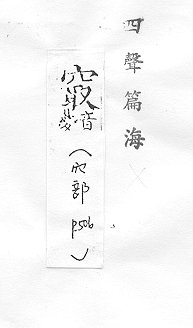 四聲篇海
音
(穴部 p506)